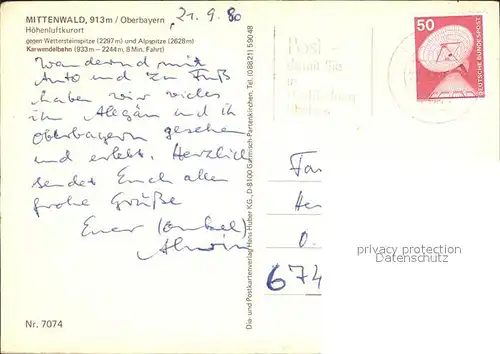 MITTENWALD, 913 m / Oberbayern
Höhenluftkurort
gegen Wettersteinspitze (2297 m) und Alpspitze (2628 m)
Karwendelbahn (933 m – 2244 m, 8 Min. Fahrt)
21. 9. 80
Wandernd mit
Auto und zu Fuß
haben wir vieles
im Allgäu und in
Oberbayern gesehen
und erlebt. Herzlich
sendet Euch allen
frohe Grüße
Euer (Onkel)
Alwin
Nr. 7074
Dia- und Postkartenverlag Hans Huber KG., D-8100 Garmisch-Partenkirchen, Tel. (08821) 59048
50
DEUTSCHE BUNDESPOST
Fa
He
O.
674
privacy protection
Datenschutz